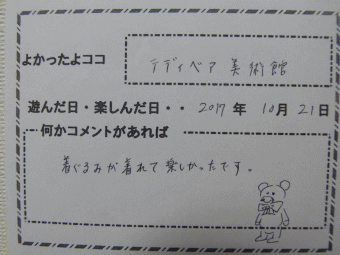 よかったよココ テディベア 美術館
遊んだ日・楽しんだ日・・ 2017 年 10月 21日
何かコメントがあれば
着ぐるみが着れて楽しかったです。